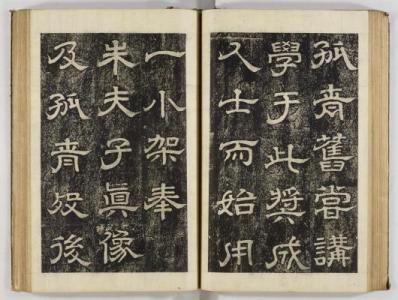 孤靑舊嘗講
學于此奬成
人士而始用
一小架奉
朱夫子眞像
及孤靑歿後